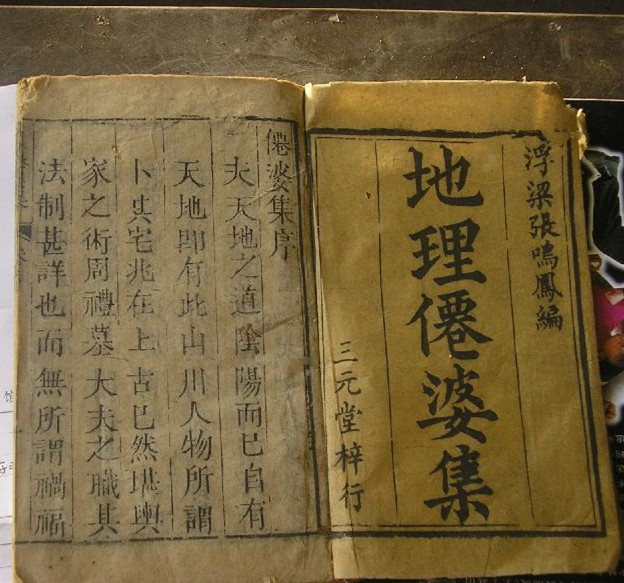 浮梁張鳴鳳編
地理僊婆集
三元堂梓行
僊婆集序
夫天地之道陰陽而已自有
天地即有此山川人物所謂
卜其宅兆在上古已然堪輿
家之術周禮墓大夫之職其
法制甚詳也而無所謂禍福